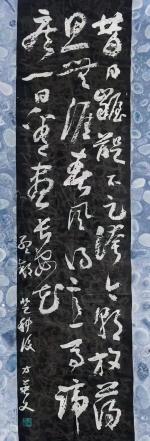 昔日齷齪不足誇今朝放蕩
思無涯春風得意馬蹄
疾一日看盡長安花
孟郊 登科後 方英文